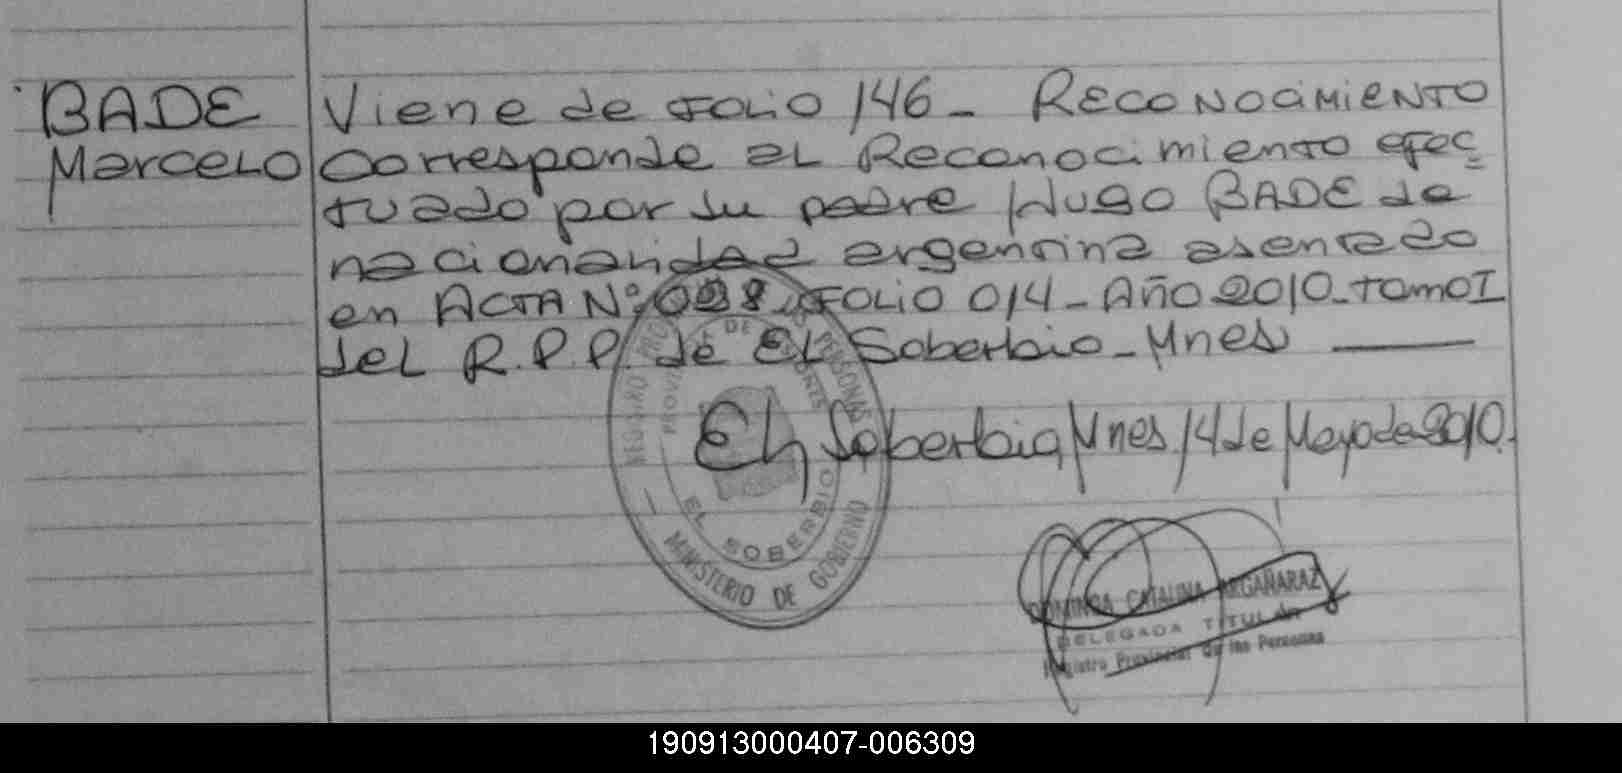 BADE
Marcelo
Viene de Folio 146 - RECONOCIMIENTO
Corresponde al Reconocimiento efec
tuado por su padre Hugo BADE de
nacionalidad argentina asentado
en ACTA Nº 008, FOLIO 014 - Año 2010 - tomo I
del R.P.P. de El Soberbio - Mnes
El Soberbio, Mnes 14 de Mayo de 2010.
REGISTRO PERSONAS
PROVI DE
EL SOBERBIO
MINISTERIO DE GOBIERNO
DOMINGA CATALINA ARGAÑARAZ
DELEGADA TITULAR
Registro Provincial de las Personas
190913000407-006309